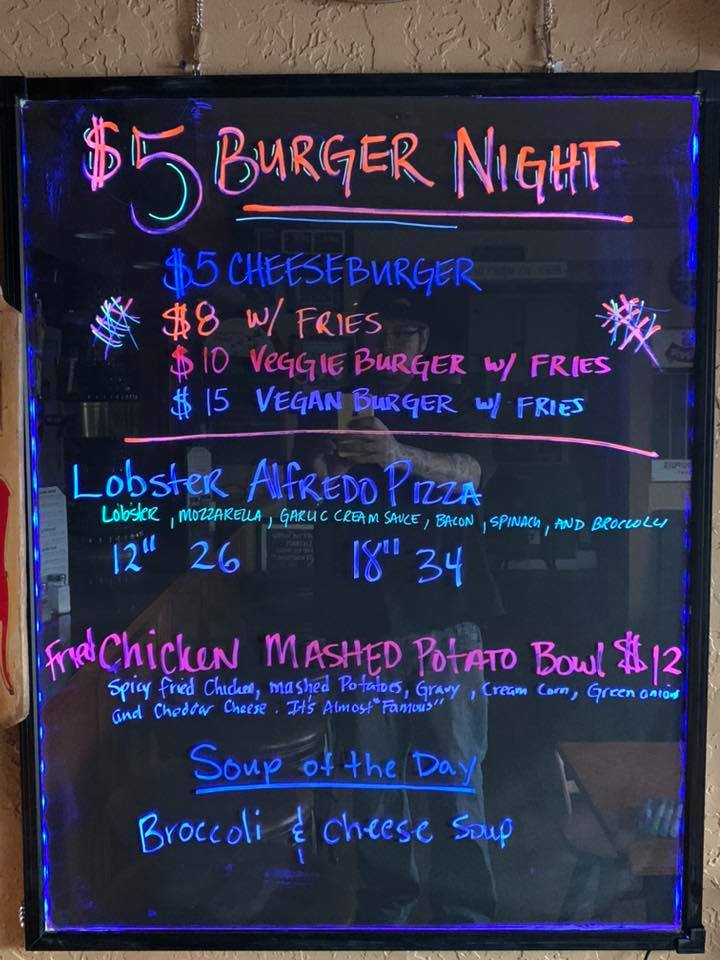 $5 BURGER NIGHT
$5 CHEESEBURGER
$8 W/ FRIES
$10 VEGGIE BURGER W/ FRIES
$15 VEGAN BURGER W/ FRIES
Lobster Alfredo Pizza
Lobster, MOZZARELLA, GARLIC CREAM SAUCE, BACON, SPINACH, AND BROCCOLI
12" 26 18" 34
Fried Chicken MASHED POTATO Bowl $12
Spicy fried Chicken, mashed Potatoes, Gravy, Cream Corn, Green onion
and Cheddar Cheese. It's Almost "Famous"
Soup of the Day
Broccoli & cheese Soup